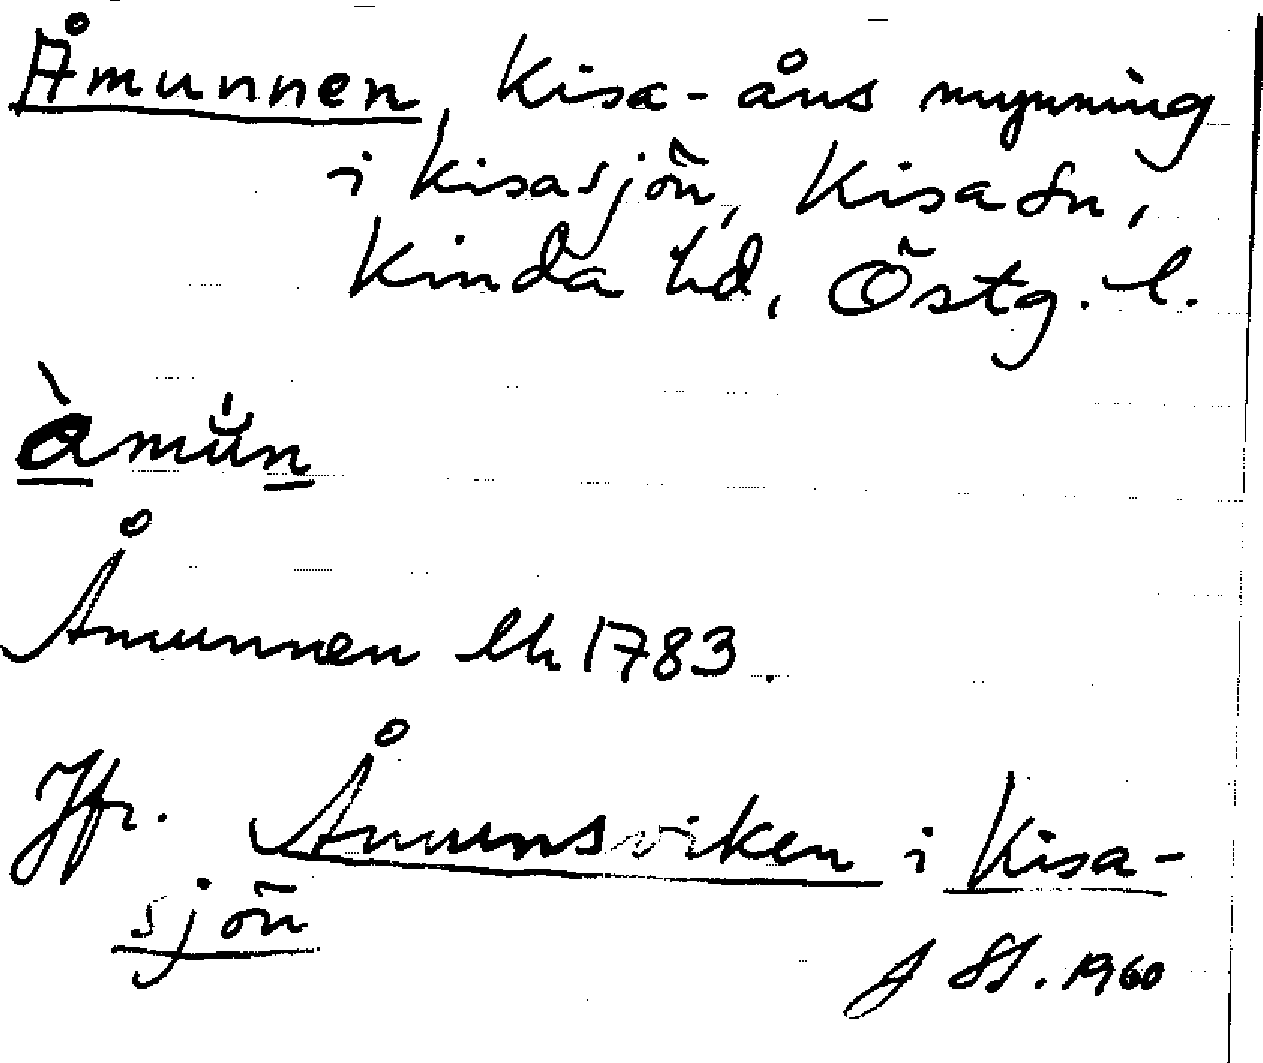 Åmunnen, Kisa-åns mynning
i Kisasjön, Kisa sn,
Kinda hd, Östg. l.
àmŭn
Åmunnen lh 1783.
Jfr. Åmunsviken i Kisa-
sjön
1960